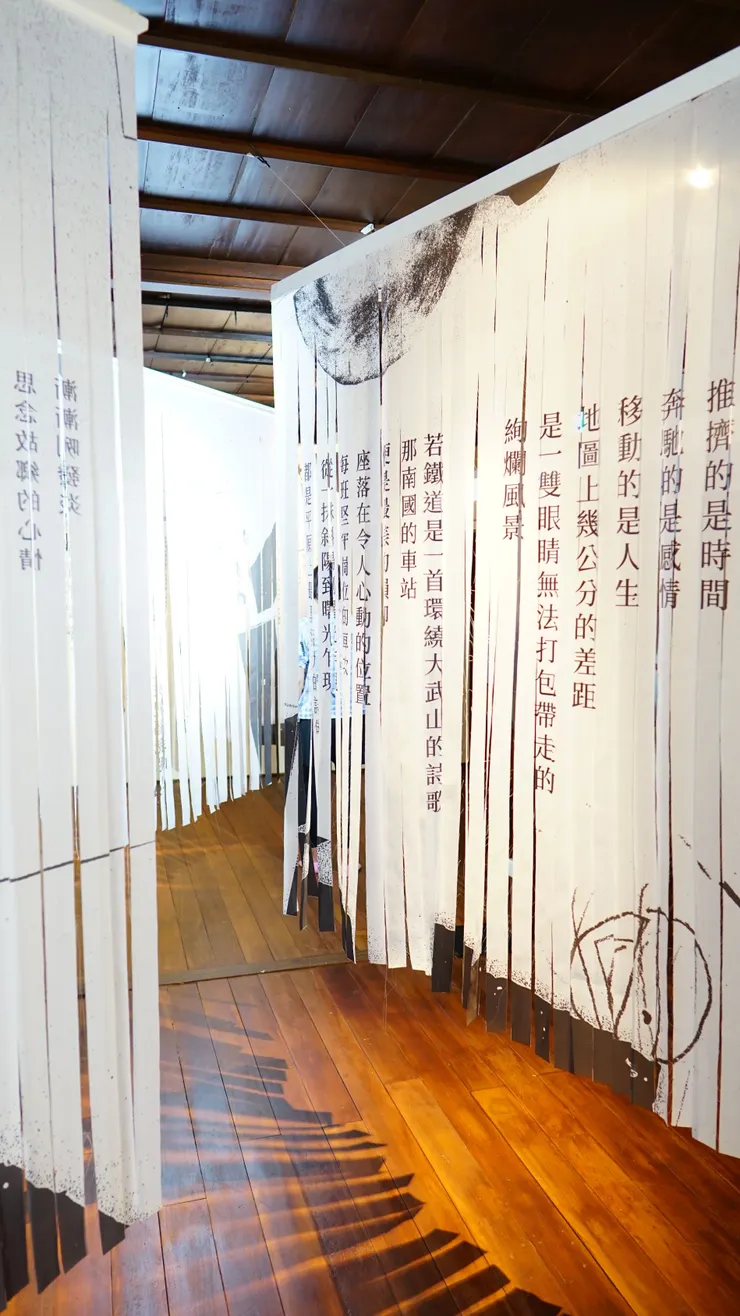 推擠的是時間
奔馳的是感情
移動的是人生
地圖上幾公分的差距
是一雙眼睛無法打包帶走的
絢爛風景
若鐵道是一首環繞大武山的詩歌
那南國的車站
便是最美的韻
座落在令人心動的位置
每班
從一抹斜陽到曙光乍現
都是
漸漸
思念故鄉的心情